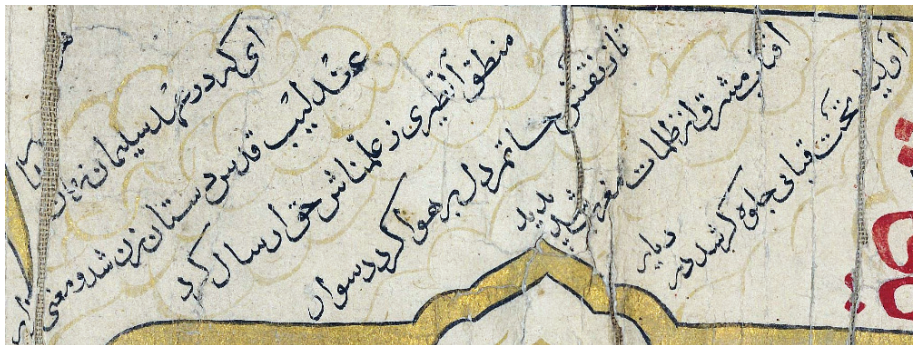 اولیا تحت قبائی جلوه کر شد در دیار
آفتاب مشرق از ظلمات مغرب شد پدید
تا ز نقش خاتم دل بر هوا کردد سوار
منطق الطیری ز علمناش حق ارسال کرد
عندلیب قدس دستان زن شد و معنی
ای که در عهد سلیمان زمان